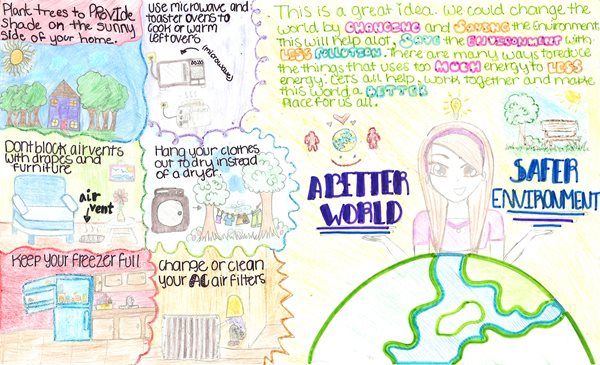 Plant trees to PROVIDE
shade on the sunny
side of your home.
Use microwave and
toaster ovens to
cook or warm
leftovers
(microwave)
Dont block airvents
with drapes and
furniture
air
vent
Hang your clothes
out to dry instead
of a dryer.
Keep your freezer full
Change or clean
your AC air filters
This is a great idea. We could change the
world by CHANGING and SAVING the Environment
this will help alot. Save the ENVIRONMENT with
LESS POLLUTION. There are many ways to reduce
the things that uses too MUCH energy to LESS
energy. Lets all help, work together and make
this world a BETTER
Place for us all.
A BETTER
WORLD
SAFER
ENVIRONMENT